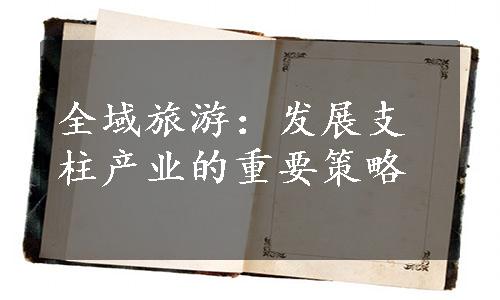 全域旅游：发展支
柱产业的重要策略